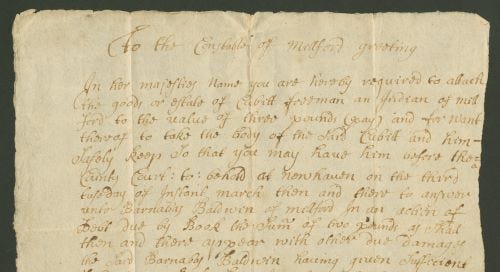 To the Constable of Milford greeting
In her majesties Name you are hereby required to attach
the goods or estate of Cubitt freeman an Indian of mil
ford to the value of three pounds (pay) and for want
thereof to take the body of the Said Cubitt and him
Safely keep So that you may have him before the
County Court: to: be held at newhaven on the third
tuseday of Instant march then and there to answer
unto Barnabas Baldwin of milford In an action of
Debt due by Book the Sum of two pounds as shall
then and there appear with other due Damages
the Said Barnabas Baldwin having given Suffecient